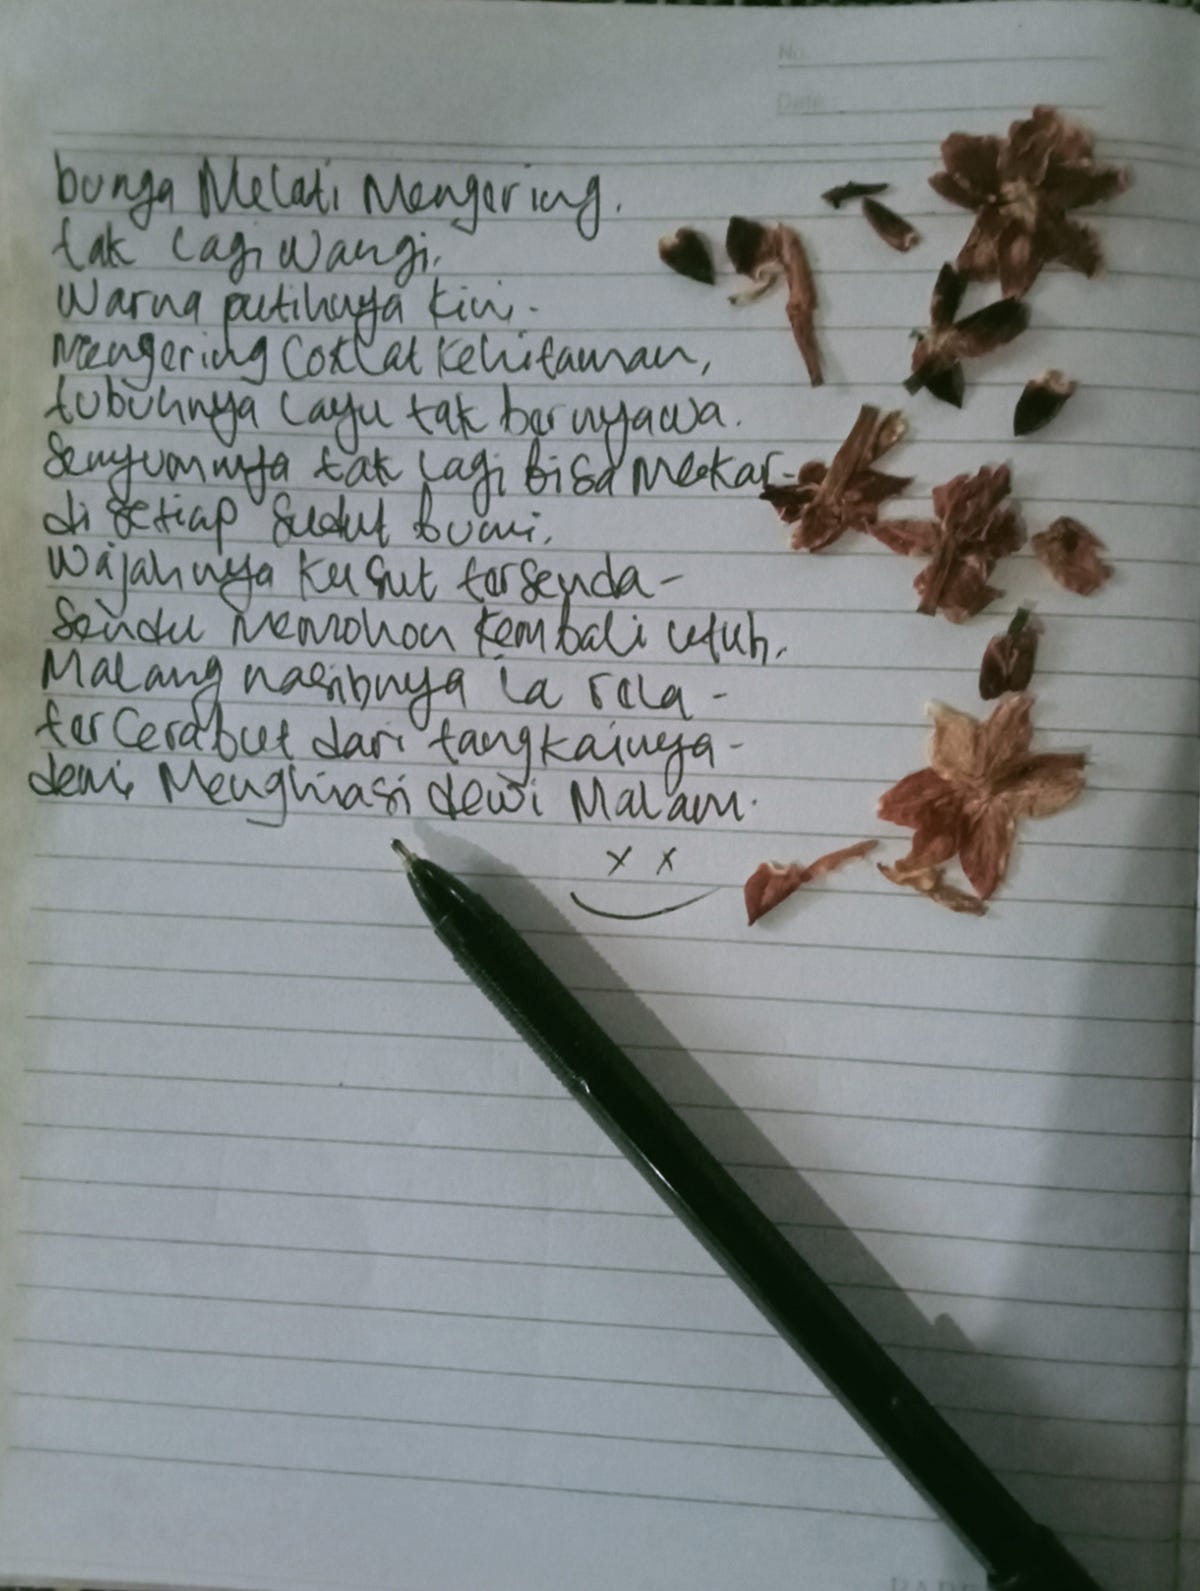 No.
Date :
bunga Melati Mengering.
tak lagi wangi,
Warna putihnya kini -
Mengering Coklat Kehitaman,
tubuhnya layu tak bernyawa.
Senyumnya tak lagi bisa Mekar -
di setiap sudut bumi.
Wajahnya kusut tersenda -
Sendu Memohon Kembali utuh.
Malang nasibnya ia rela -
tercerabut dari tangkainya -
demi Menghiasi dewi Malam.
x x